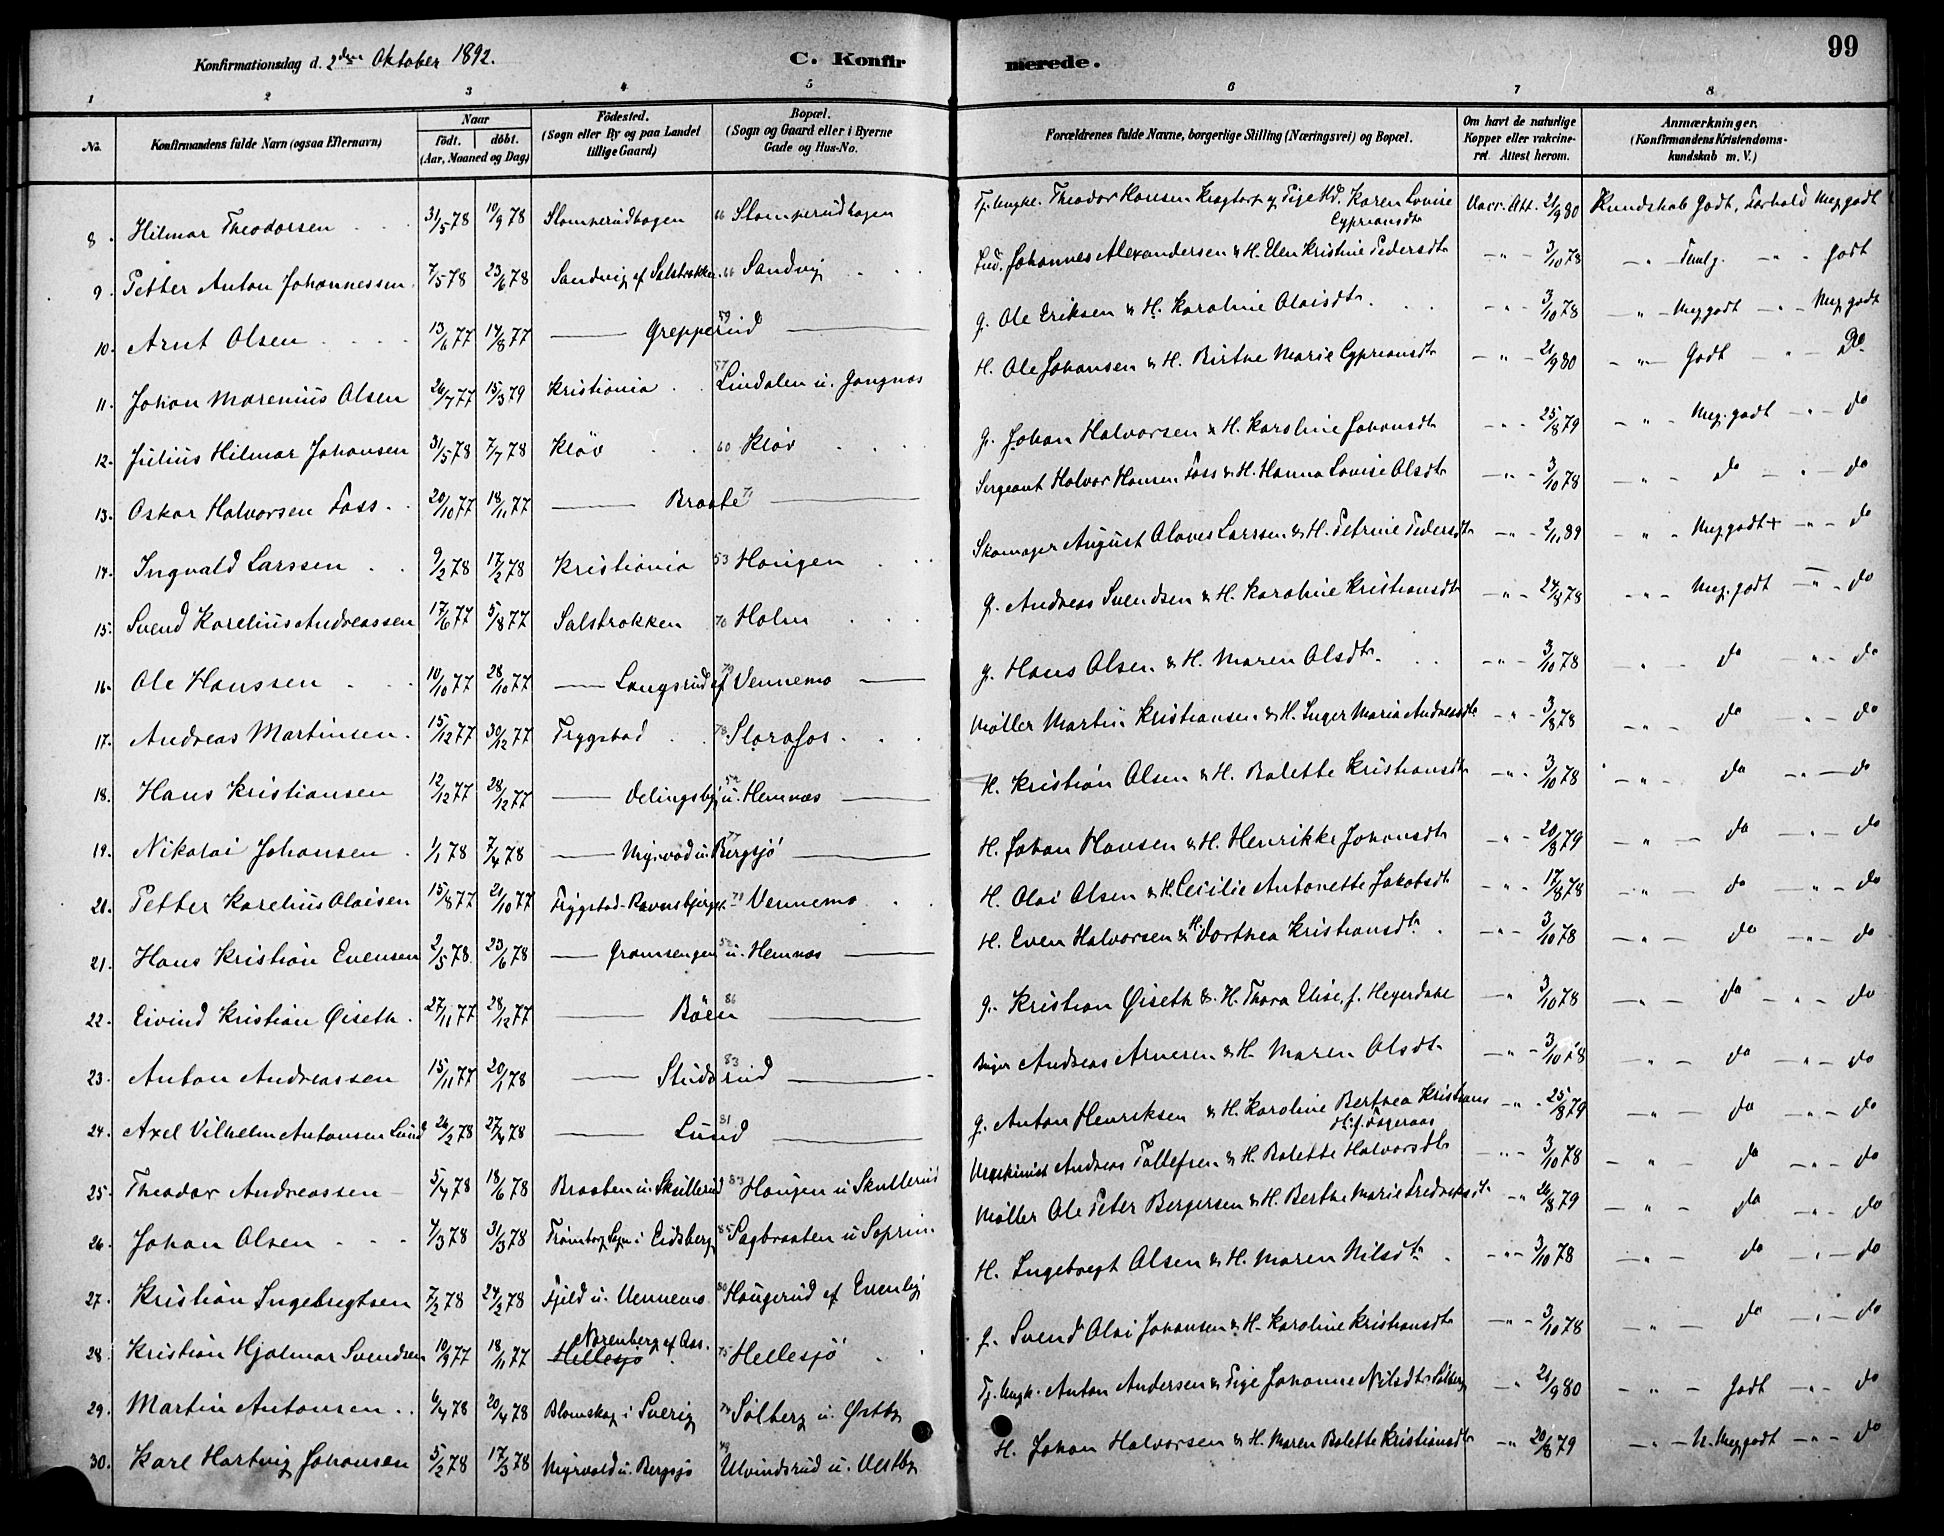 99
Konfirmationsdag d. 2den Oktober 1892. C. Konfirmerede.
1 2 3 4 5 6 7 8
No. Konfirmandens fulde Navn (ogsaa Efternavn) Naar født. døbt. (Aar, Maaned og Dag) Fødested. (Sogn eller By og paa Landet tillige Gaard) Bopæl. (Sogn og Gaard eller i Byerne Gade og Hus-No. Forældrenes fulde Navne, borgerlige Stilling (Næringsvei) og Bopæl. Om havt de naturlige Kopper eller vakcineret. Attest herom. Anmærkninger. (Konfirmandens Kristendomskundskab m. V.)
8. Hilmar Theodorsen 31/5 78 10/9 78 Slomperudhagen 66 Slomperudhagen Tj. Ungk. Theodor Hansen Kragtorp og Pige Karen Lovise Cypriansdtr Vacc. Att. 21/9 80 Kundskab Godt, Forhold Meg. godt
9. Petter Anton Johannessen 7/5 78 23/6 78 Sandvig af Salstrokken 66 Sandvig Ind. Johannes Alexandersen & H. Elen Kristine Pedersdtr -"- 3/10 78 -"- Temlg. -"- godt
10. Arnt Olsen 13/6 77 14/8 77 — Grepperud 59 — G. Ole Eriksen & H. Karoline Olaisdtr -"- 3/10 78 -"- Meg godt -"- Meg godt
11. Johan Marenius Olsen 26/7 77 15/3 79 Kristiania 57 Lindalen u. Gangnæs H. Ole Johansen & H. Birthe Marie Cypriansdtr -"- 21/9 80 -"- Godt -"- Do
12. Julius Hilmar Johansen 31/5 78 7/7 78 Kløv 60 Kløv G. Johan Halvorsen & H. Karoline Johansdtr -"- 25/8 79 -"- Meg. godt -"- do
13. Oskar Halvorsen Foss 20/10 77 18/11 77 — Braate 71 — Sergeant Halvor Hansen Foss & H. Hanna Lovise Olsdtr -"- 3/10 78 -"- do -"- do
14. Ingvald Larssen 9/2 78 17/2 78 Kristiania 53 Haugen Skomager August Olaves Larssen & H. Petrine Pedersdtr -"- 2/11 89 -"- Meg godt+ -"- do
15. Svend Karelius Andreassen 17/6 77 5/8 77 Salstrokken 70 Holm G. Andreas Svendsen & H. Karoline Kristiansdtr -"- 24/8 78 -"- Meg. godt -"- do
16. Ole Hanssen 10/10 77 28/10 77 — Langsrud af 79 Vennemo — G. Hans Olsen & H. Maren Olsdtr. -"- 3/10 78 -"- do -"- do
17. Andreas Martinsen 15/12 77 30/12 77 Trygstad 78 Storafos Møller Martin Kristiansen & H. Inger Maria Andreasdtr -"- 3/8 78 -"- do -"- do
18. Hans Kristiansen 12/12 77 28/12 77 — Delingsby u. 52 Hemnæs — H. Kristian Olsen & H. Bolette Kristiansdtr -"- 3/10 78 -"- do -"- do
19. Nikolai Johansen 1/1 78 7/4 78 — Myrvold u. Bergsjö 77 — H. Johan Hansen & H. Henrikke Johansdtr -"- 20/8 79 -"- do -"- do
20. Petter Karelius Olaisen 15/8 77 21/10 77 Trygstad-Ravnsbjerget 79 Vennemo H. Olai Olsen & H. Cecilie Antonette Jakobsdtr -"- 17/8 78 -"- do -"- do
21. Hans Kristian Evensen 2/5 78 23/6 78 — Gramsengen u. 52 Hemnæs — H. Even Halvorsen & H. Dorthea Kristiansdtr. -"- 3/10 78 -"- do -"- do
22. Eivind Kristian Øiseth 27/11 77 28/12 77 — Böen 86 — G. Kristian Øiseth & H. Thora Elise, f. Heyerdahl -"- 3/10 78 -"- do -"- do
23. Anton Andreassen 15/11 77 20/1 78 — Studsrud 83 — Andreas Arnesen & H. Maren Olsdtr -"- 3/10 78 -"- do -"- do
24. Axel Vilhelm Antonsen Lund 26/2 78 27/4 78 — Lund 81 — G. Anton Henriksen & H. Karoline Berthea Kristians -"- 25/8 79 -"- do -"- do
25. Theodor Andreassen 5/4 78 18/6 78 Braaten u. Skullerud 83 Haugen u Skullerud Maskinist Andreas Tollefsen & H. Bolette Halvorsdtr -"- 3/10 78 -"- do -"- do
26. Johan Olsen 7/3 78 31/3 78 Trømborg Sogn i Eidsberg 85 Sagbraaten u Soprim Møller Ole Peter Bergersen & H. Berthe Marie Fredriksdtr -"- 26/8 79 -"- do -"- do
27. Kristian Ingebregtsen 7/2 78 24/2 78 Fjeld u. Vennemo 80 Haugerud af Evenby H. Ingebregt Olsen & H. Maren Nilsdtr -"- 3/10 78 -"- do -"- do
28. Kristian Hjalmar Svendsen 10/9 77 18/11 77 Norenberg af Aas. Hellesjö 75 Hellesjö G. Svend Olai Johansen & H. Karoline Kristiansdtr -"- 3/10 78 -"- do -"- do
29. Martin Antonsen 6/4 78 20/4 78 Blomskog i Sverig 74 Solberg u. Østby Tj. Ungk. Anton Andersen & Pige Johanne Nilsdtr Solberg -"- 21/9 80 -"- Godt -"- do
30. Karl Hartvig Johansen 5/2 78 17/3 78 Myrvold u. Bergsjö 49 Ulvindsrud u. Vestby H. Johan Halvorsen & H. Maren Bolette Kristiansdtr -"- 20/8 79 -"- N. Meg godt -"- do